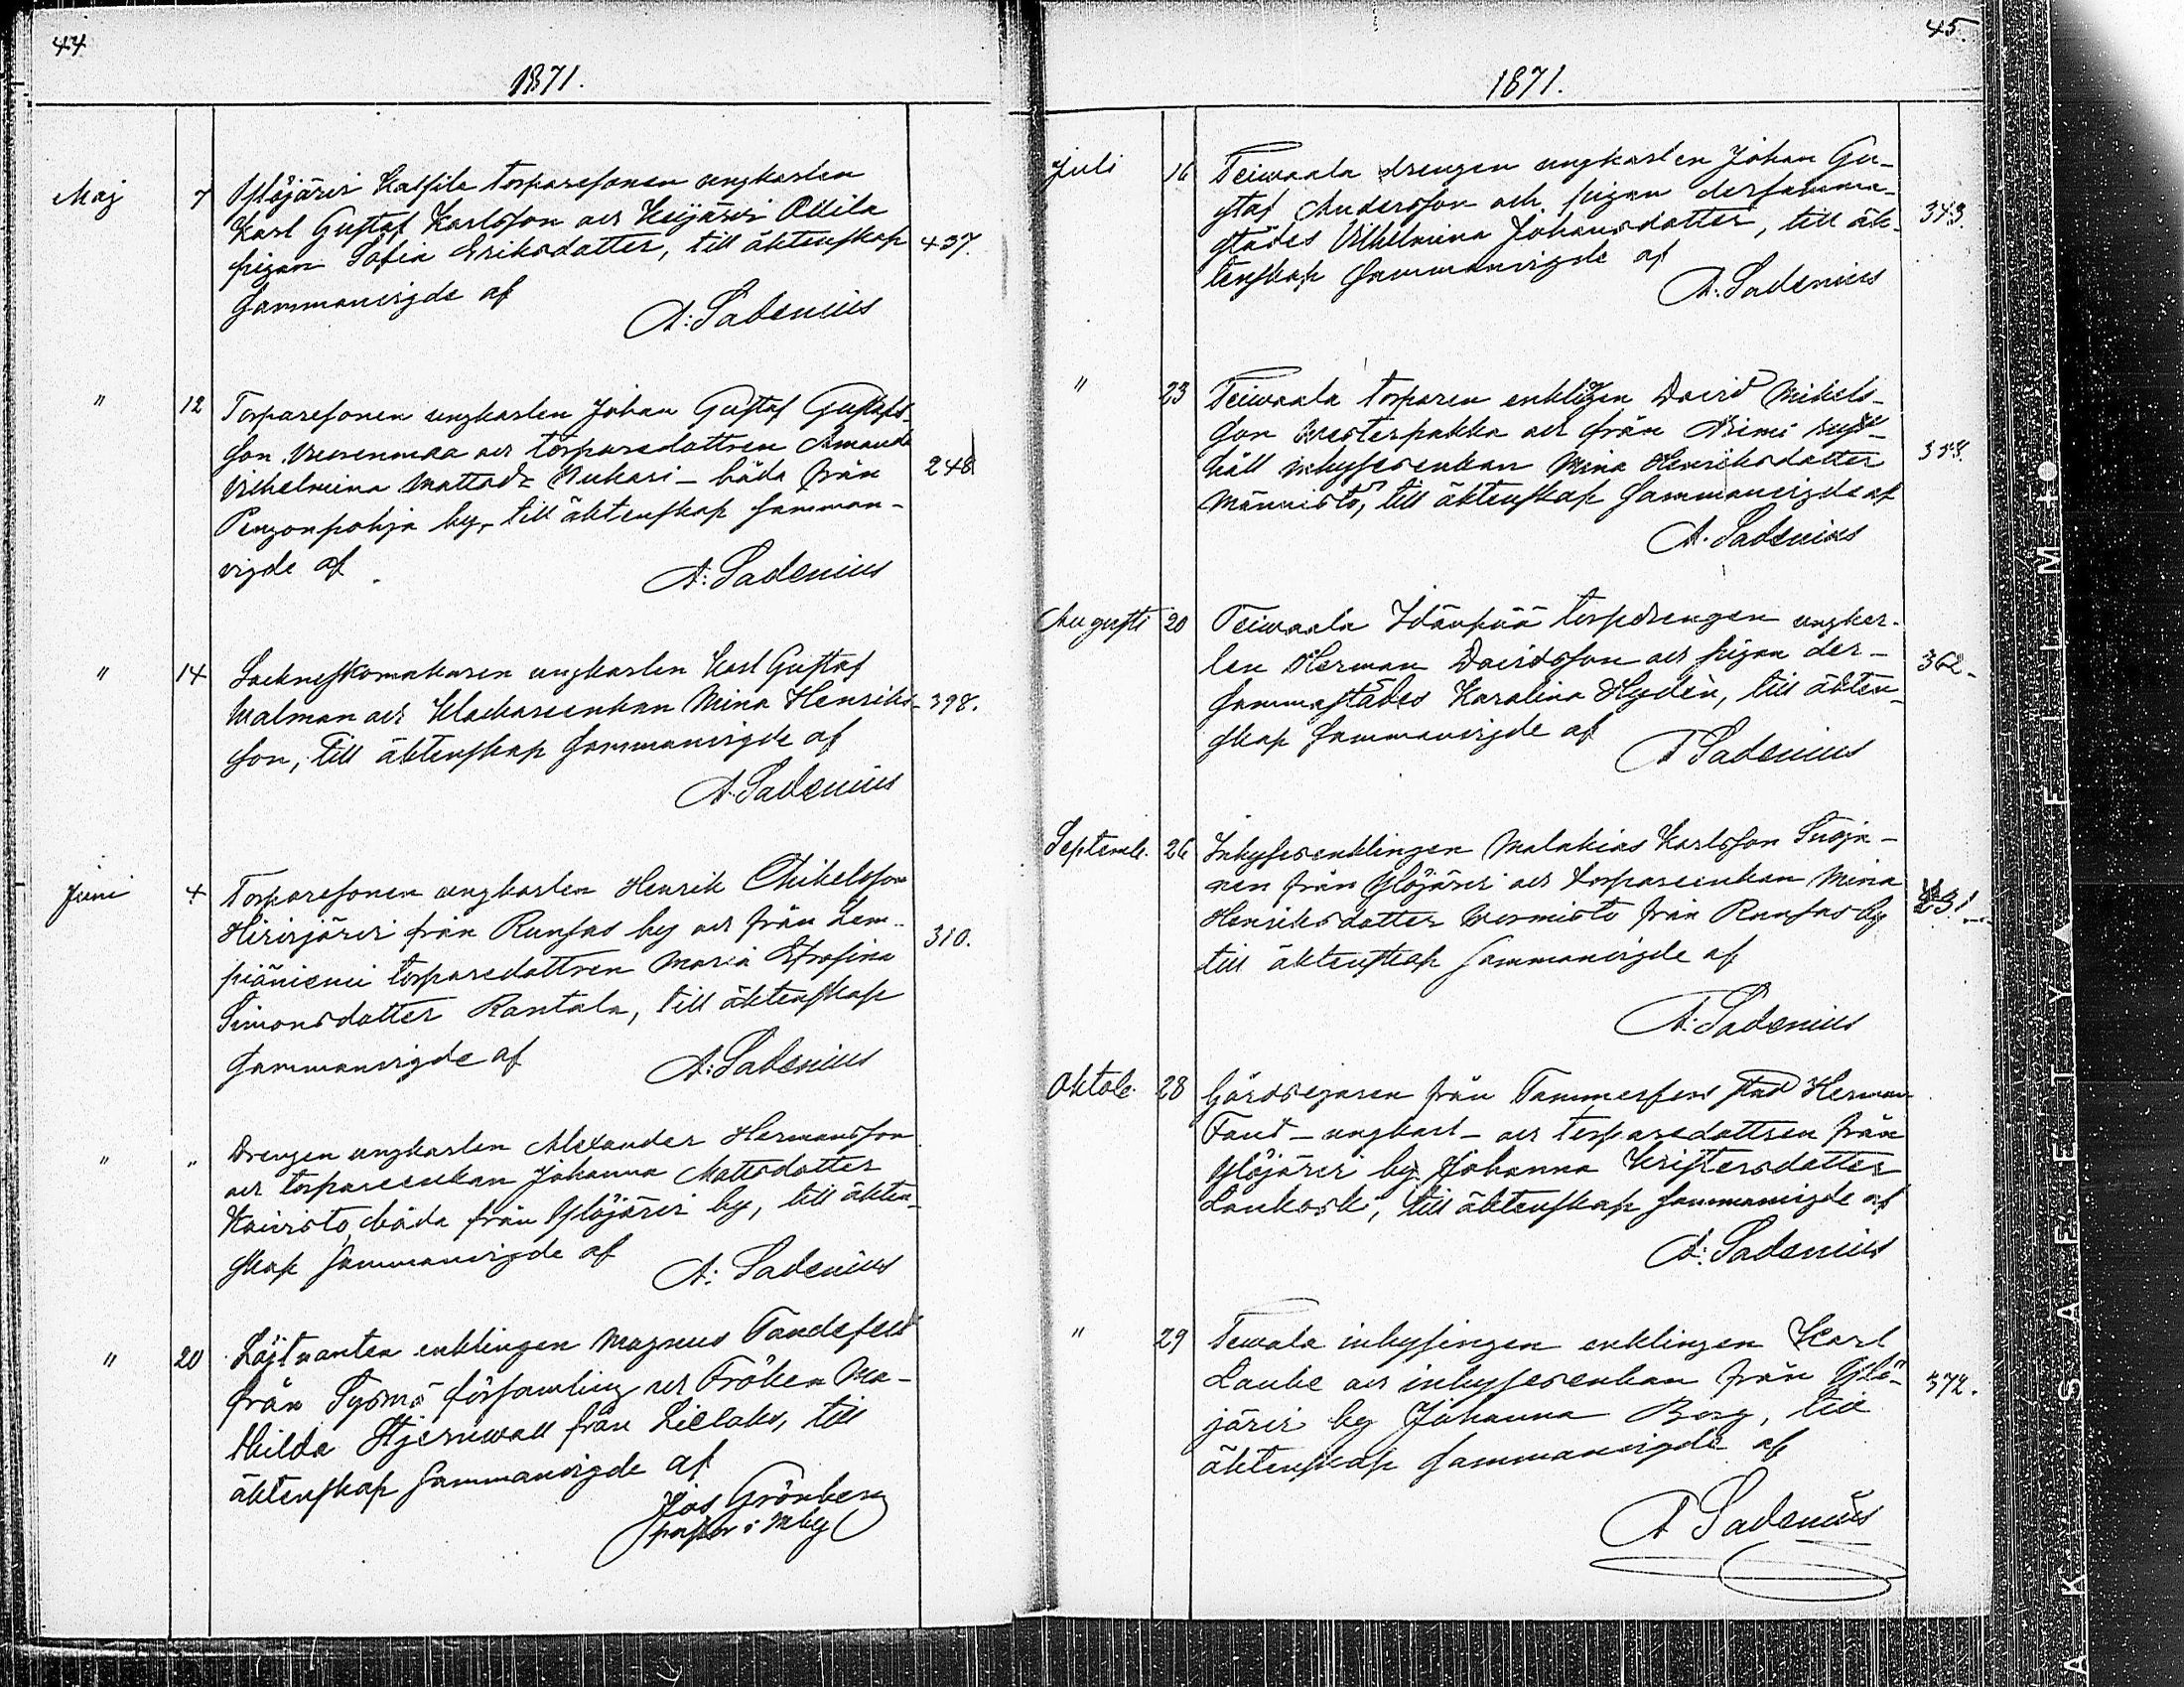 44.
1871.
Maj 7 Ylöjärvi Kaifila torparesonen ungkarlen
Karl Gustaf Karlsson och Keijärvi Ollila
pigan Sofia Eriksdotter, till äktenskap 437.
sammanvigde af
A: Sadenius
" 12 Torparesonen ungkarlen Johan Gustaf Gustafs-
son Vuorenmaa och torparedottren Amanda
Vilhelmina Mattsdr Mukari – båda från 248
Pengonpohja by, till äktenskap samman-
vigde af
A: Sadenius
" 14 Socknskomakaren ungkarlen Karl Gustaf
Malman och Klockareenkan Mina Henriks- 398.
son, till äktenskap sammanvigde af
A. Sadenius
Juni 4 Torparesonen ungkarlen Henrik Mikelsson
Hirvijärvi från Runsas by och från Lem-
piäniemi torparedottren Maria Efrosina 310.
Simonsdotter Rantala, till äktenskap
sammanvigde af
A: Sadenius
" " Drengen ungkarlen Alexander Hermansson
och torpareenkan Johanna Mattsdotter
Koivisto, båda från Ylöjärvi by, till äkten-
skap sammanvigde af
A: Sadenius
" 20 Löjtnanten enklingen Magnus Tandefelt
från Sysmä församling och Fröken Ma-
thilda Stjernvall från Lielaks, till
äktenskap sammanvigde af
Jos Grönberg
pastor i Mby
45.
1871.
Juli 16 Teivaala drengen ungkarlen Johan Gu-
staf Andersson och pigan dersamma-
städes Vilhelmina Johansdotter, till äk- 343.
tenskap sammanvigde af
A: Sadenius
" 23 Teivaala torparen enklingen David Mikels-
son Mesterpakka och från Nimi rust-
håll inhysesenkan Mina Henriksdotter 353.
Männistö, till äktenskap sammanvigde af
A. Sadenius
Augusti 20 Teivaala Ylänpää torpdrengen ungkar-
len Herman Davidsson och pigan der-
sammastädes Karolina Hydén, till äkten- 362.
skap sammanvigde af
A Sadenius
Septemb. 26 Inhysesenklingen Malakias Karlsson Suoja-
nen från Ylöjärvi och torpareenkan Mina
Henriksdotter Vuormisto från Runsas by 231
till äktenskap sammanvigde af
A: Sadenius
Oktob. 28 Gårdsegaren från Tammerfors stad Herman
Fant – ungkarl – och torparedottren från
Ylöjärvi by Johanna Kristersdotter
Laukosk, till äktenskap sammanvigde af
A: Sadenius
" 29 Teivala inhysingen enklingen Karl
Laube och inhysesenkan från Ylö- 372.
järvi by Johanna Borg, till
äktenskap sammanvigde af
A Sadenius
AKVSAFETYAFILM